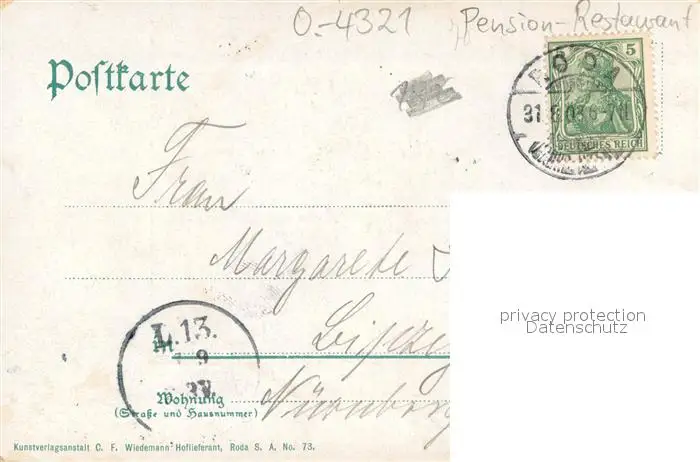 O.-4321 Pension-Restaurant
Postkarte
5
DEUTSCHES REICH
RODA
31.8.03 6-7N
Frau
Margarete
privacy protection
Datenschutz
L.13.
9
In
Leipzig
Wohnung
(Straße und Hausnummer)
Nürnberg
Kunstverlagsanstalt C. F. Wiedemann Hoflieferant, Roda S. A. No. 73.